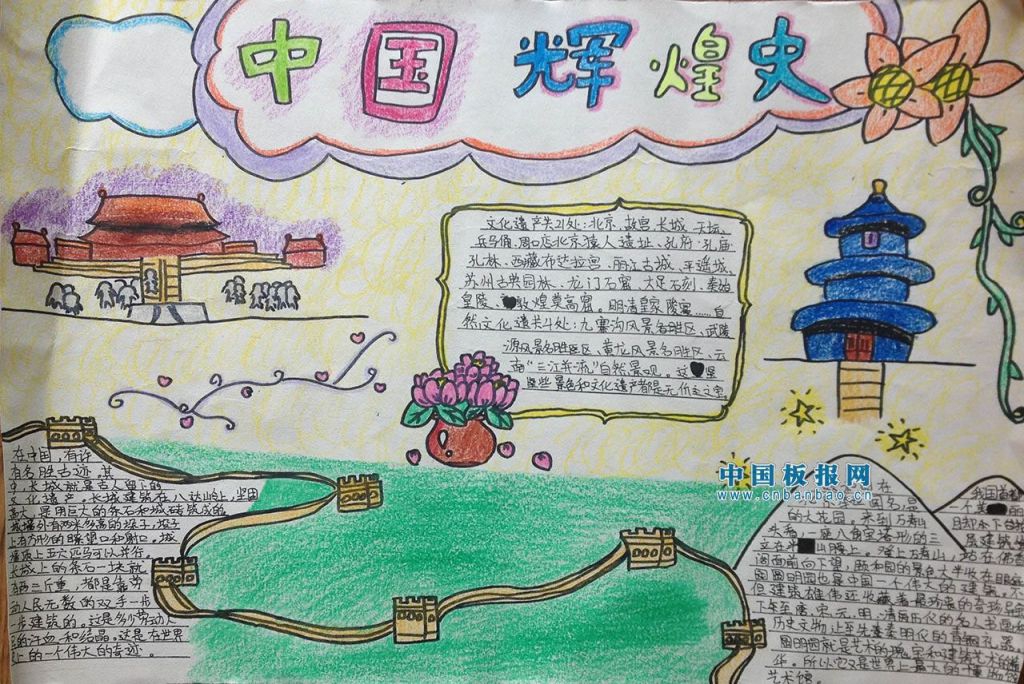 中国辉煌史
文化遗产共21处:北京,故宫,长城,天坛,
兵马俑、周口店北京猿人遗址、孔府、孔庙
孔林、西藏布达拉宫、丽江古城、平遥城、
苏州古典园林、龙门石窟、大足石刻、秦始
皇陵、敦煌莫高窟。明清皇家陵寝……自
然文化遗产4处:九寨沟风景名胜区、武陵
源风景名胜区、黄龙风景名胜区、云
南"三江并流"自然景观。这
些景色和文化遗产都是无价之宝
在中国,有许
有名胜古迹,其
中,长城就是古人留下的
文化遗产,长城建筑在八达岭上,坚固
高大,是用巨大的条石和城砖筑成的
城墙外有两米多高的垛子,垛子
上有方形的瞭望口和射口。城
墙顶上五六匹马可以并行。
长城上的条石一块就
有两三斤重,都是靠劳
动人民无数的双手一步
一步建筑的。这是多少劳动人
的汗血和结晶。这是在世界
上的一个伟大的奇迹。
中国板报网
www.cnbanbao.cn
在
的大花园。来到万寿山
山腰上。登上万寿山,站在佛香
阁前面向下望,颐和园的景色大半收在眼底
圆明园也是中国一个伟大的建筑,不
但建筑雄伟还收藏着最珍贵的
历史文物
艺术馆。